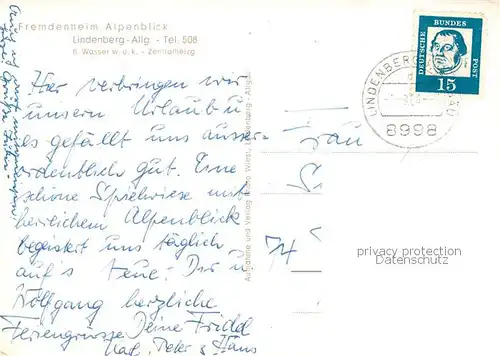 Fremdenheim Alpenblick
Lindenberg-Allg. - Tel. 508
fl. Wasser w. u. k. - Zentralheizg
Hier verbringen wir
unsern Urlaub u.
es gefällt uns ausser-
ordentlich gut. Eine
schöne Spielwiese mit
herrlichem Alpenblick
begeistert uns täglich
auf's Neue. Dir u.
Wolfgang herzliche
Feriengrüsse Deine Friedel
Karl, Peter & Hans
Auch ich
Grüße
Aufnahme und Verlag Wiest, Lindenberg - Allgäu
Frau
74
DEUTSCHE BUNDES POST
15
LINDENBERG
8998
privacy protection
Datenschutz